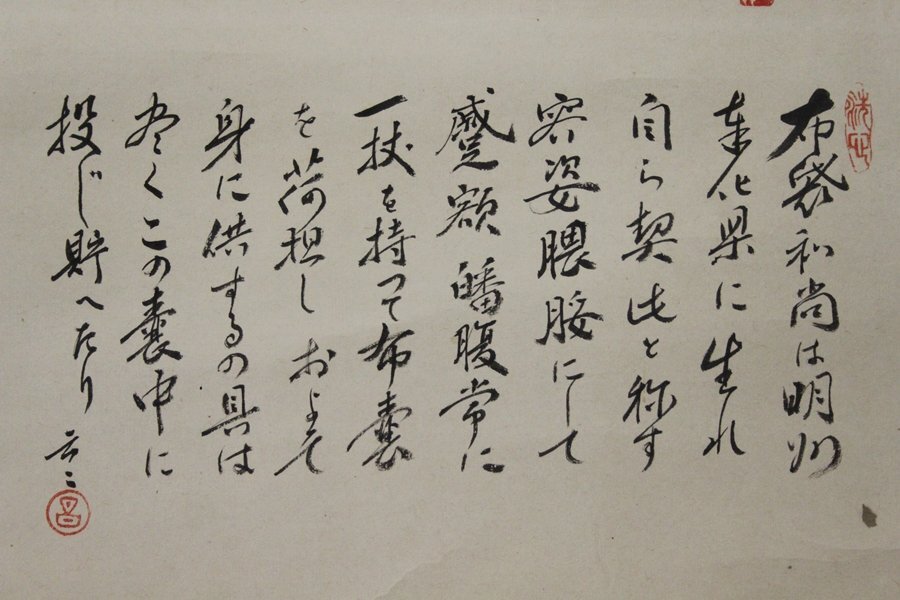 布袋和尚は明州
奉化県に生れ
自ら契此と称す
容姿腲脮にして
蹙額皤腹常に
一杖を持つて布嚢
を荷担しおよそ
身に供するの具は
尽くこの嚢中に
投じ貯へたり 云々